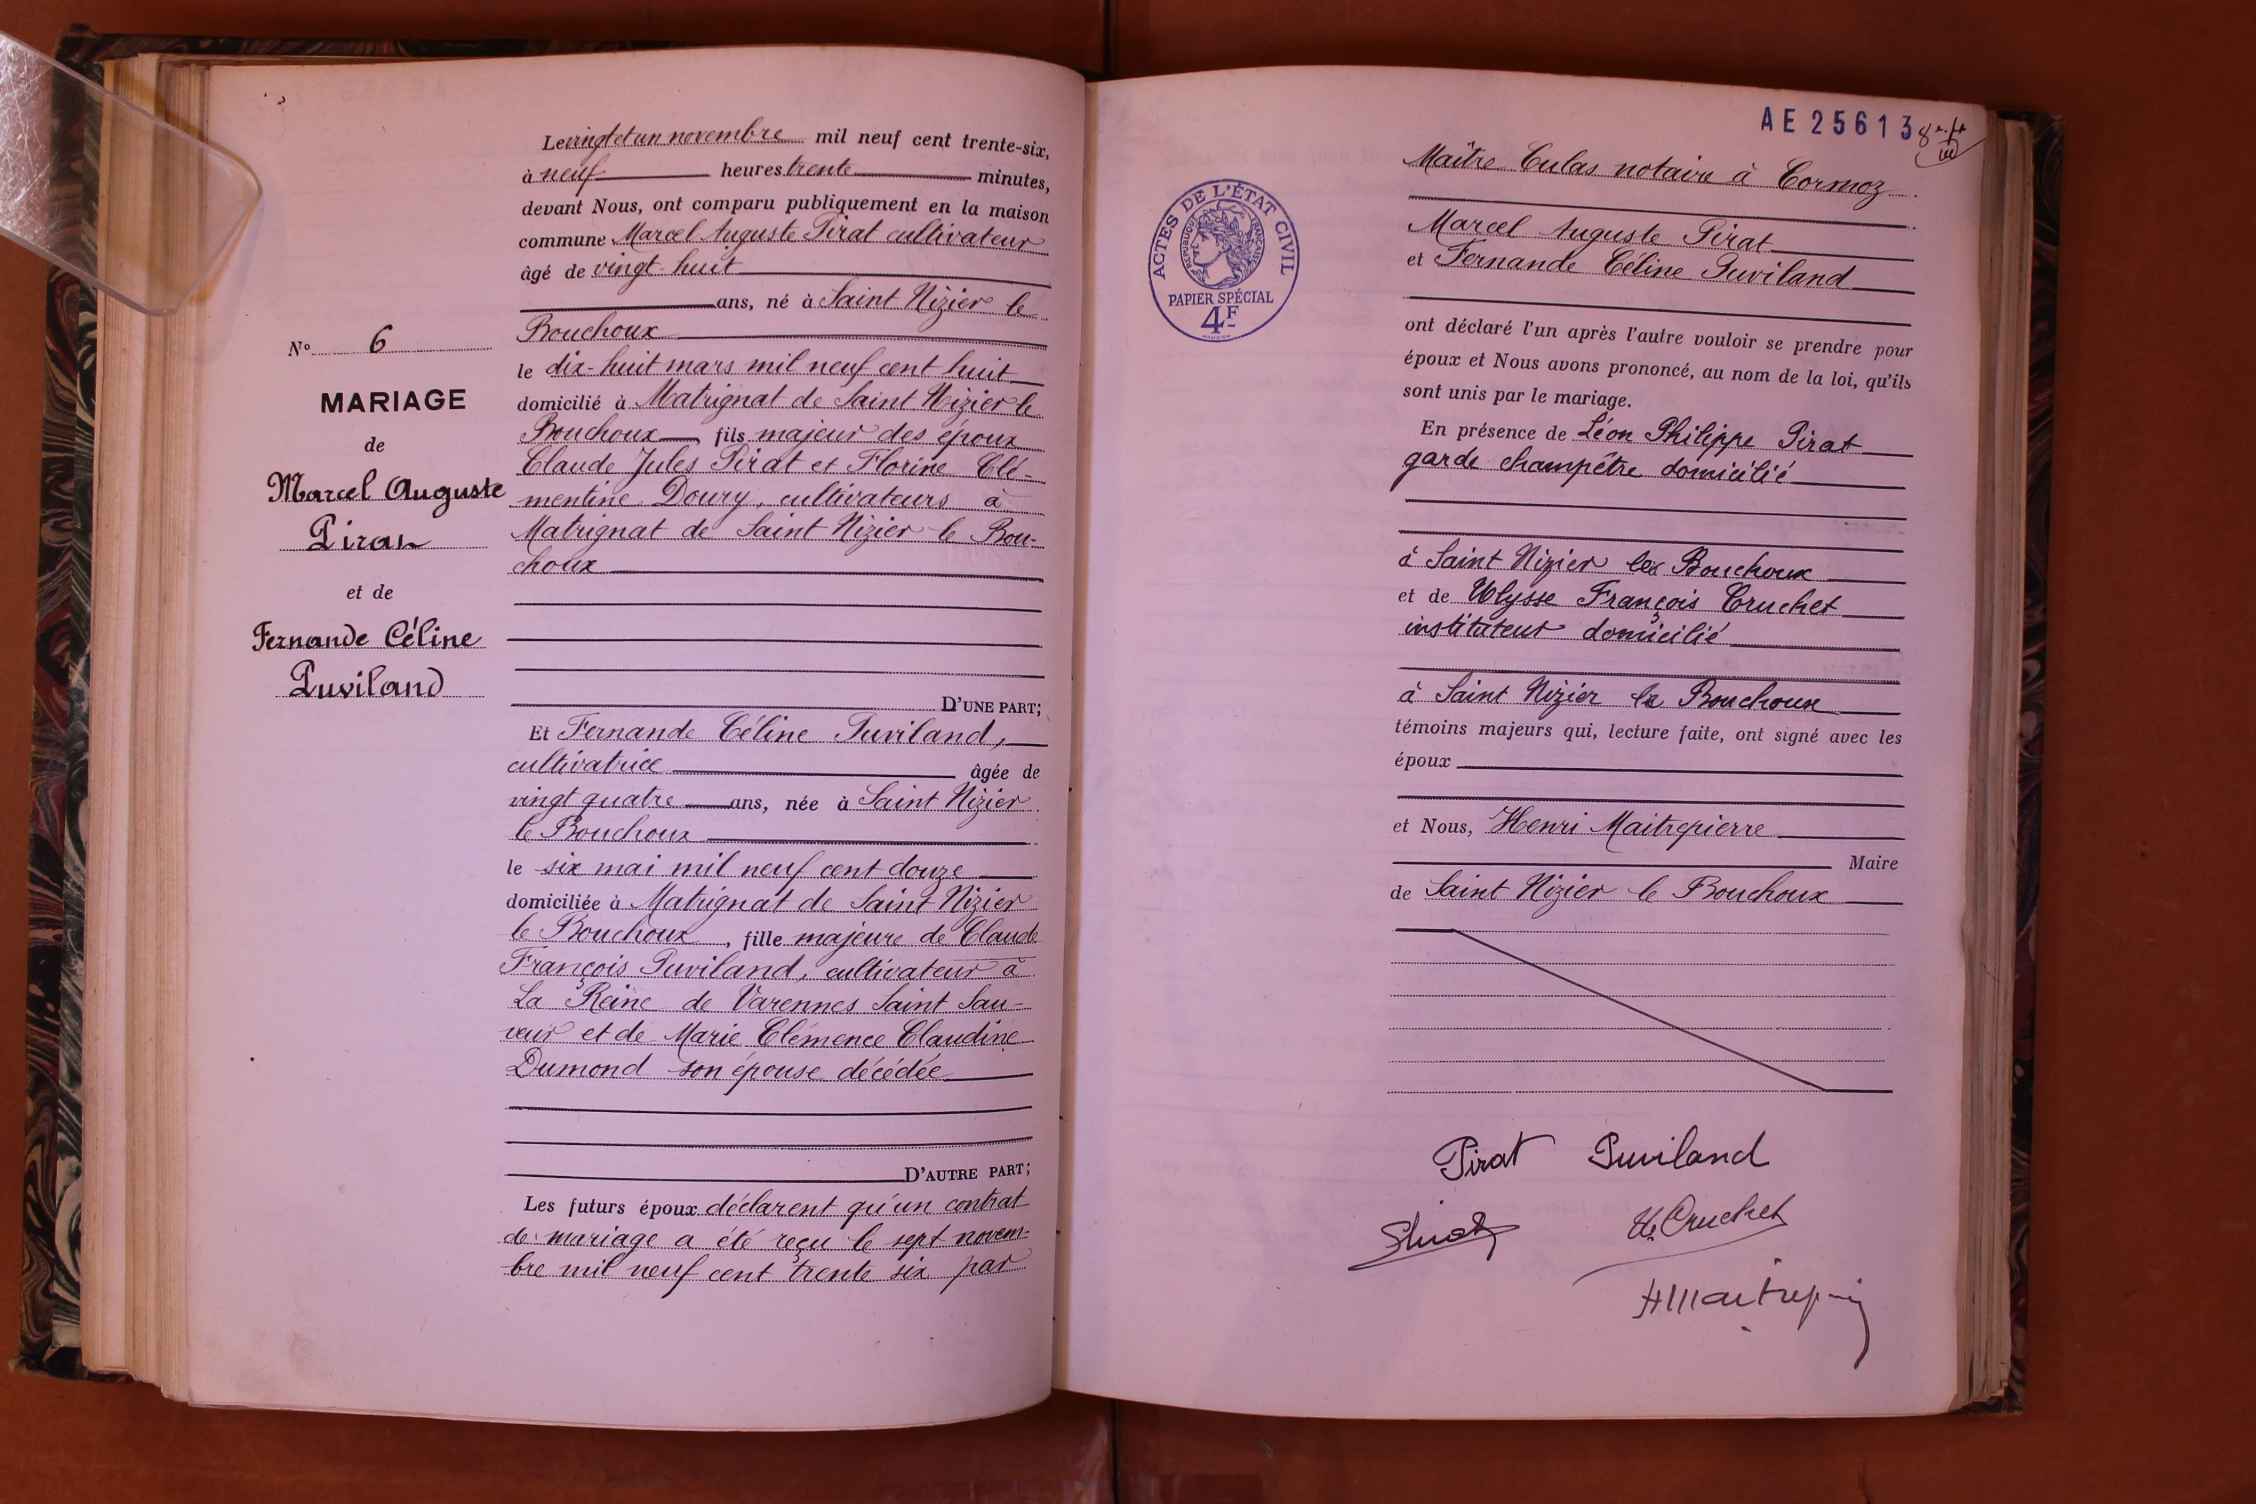 N° 6
MARIAGE
de
Marcel Auguste
Pirat
et de
Fernande Céline
Puviland
Le vingt et un novembre mil neuf cent trente-six,
à neuf heures trente minutes,
devant Nous, ont comparu publiquement en la maison
commune Marcel Auguste Pirat cultivateur
âgé de vingt-huit
ans, né à Saint Nizier le
Bouchoux
le dix-huit mars mil neuf cent huit
domicilié à Matrignat de Saint Nizier le
Bouchoux, fils majeur des époux
Claude Jules Pirat et Florine Clé-
mentine Doury, cultivateurs à
Matrignat de Saint Nizier le Bou-
choux
D'UNE PART;
Et Fernande Céline Puviland,
cultivatrice âgée de
vingt quatre ans, née à Saint Nizier
le Bouchoux
le six mai mil neuf cent douze
domiciliée à Matrignat de Saint Nizier
le Bouchoux, fille majeure de Claude
François Puviland, cultivateur à
La Reine de Varennes Saint Sau-
veur et de Marie Clémence Claudine
Dumond son épouse décédée
D'AUTRE PART;
Les futurs époux déclarent qu'un contrat
de mariage a été reçu le sept novem-
bre mil neuf cent trente six par
AE 25613
ACTES DE L'ÉTAT CIVIL
RÉPUBLIQUE FRANÇAISE
PAPIER SPÉCIAL
4F
Maître Culas notaire à Cormoz
Marcel Auguste Pirat
et Fernande Céline Puviland
ont déclaré l'un après l'autre vouloir se prendre pour
époux et Nous avons prononcé, au nom de la loi, qu'ils
sont unis par le mariage.
En présence de Léon Philippe Pirat
garde champêtre domicilié
à Saint Nizier le Bouchoux
et de Ulysse François Cruchet
instituteur domicilié
à Saint Nizier le Bouchoux
témoins majeurs qui, lecture faite, ont signé avec les
époux
et Nous, Henri Maitrepierre
Maire
de Saint Nizier le Bouchoux
Pirat Puviland
U. Cruchet
HMaitrep